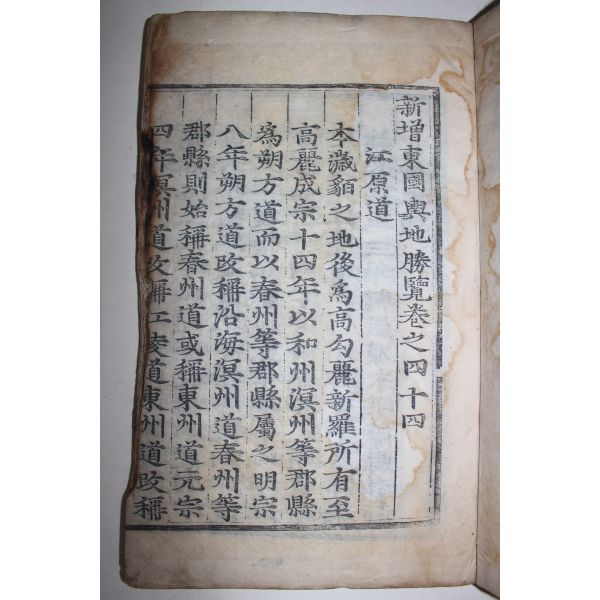 新增東國輿地勝覽卷之四十四
江原道
本濊貊之地後爲高句麗新羅所有至
高麗成宗十四年以和州溟州等郡縣
爲朔方道而以春州等郡縣屬之明宗
八年朔方道改稱沿海溟州道春州等
郡縣則始稱春州道或稱東州道元宗
四年溟州道改稱江陵道東州道改稱